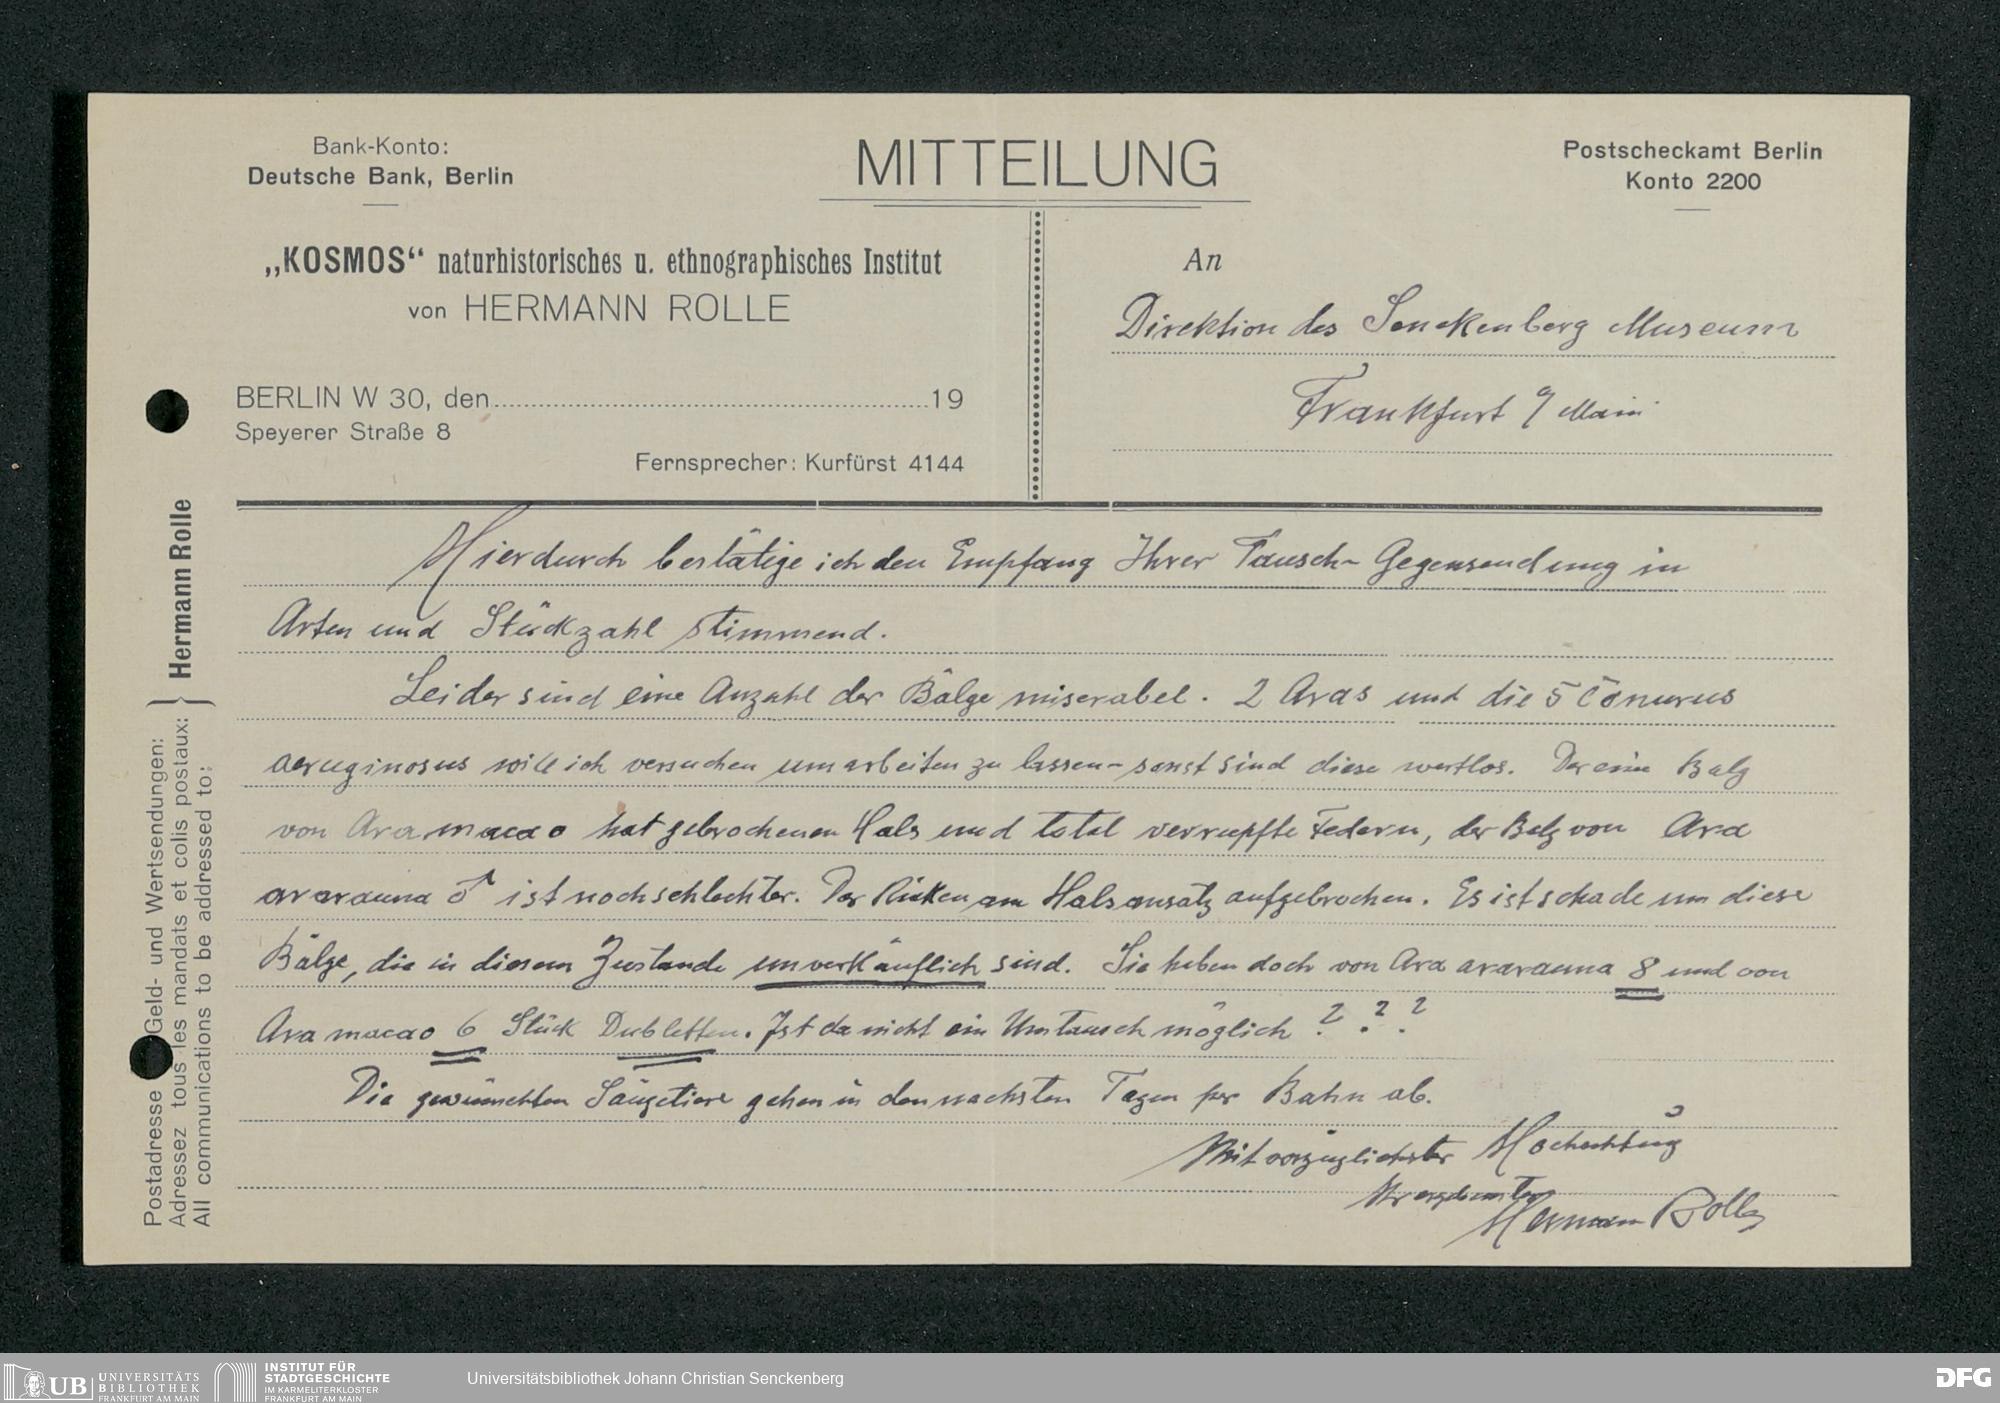 Bank-Konto:
Deutsche Bank, Berlin
MITTEILUNG
Postscheckamt Berlin
Konto 2200
„KOSMOS“ naturhistorisches u. ethnographisches Institut
von HERMANN ROLLE
BERLIN W 30, den 19
Speyerer Straße 8
Fernsprecher: Kurfürst 4144
An
Direktion des Senckenberg Museum
Frankfurt a/Main
Hierdurch bestätige ich den Empfang Ihrer Tausch-Gegensendung in
Arten und Stückzahl stimmend.
Leider sind eine Anzahl der Bälge miserabel. 2 Aras und die 5 Conurus
aeruginosus will ich versuchen umarbeiten zu lassen - sonst sind diese wertlos. Der eine Balg
von Ara macao hat gebrochenen Hals und total verrupfte Federn, der Balg von Ara
ararauna ♂ ist noch schlechter. Der Rücken am Halsansatz aufgebrochen. Es ist schade um diese
Bälge, die in diesem Zustande unverkäuflich sind. Sie haben doch von Ara ararauna 8 und von
Ara macao 6 Stück Dubletten. Ist da nicht ein Umtausch möglich ? ? ?
Die gewünschten Säugetiere gehen in den nächsten Tagen per Bahn ab.
Mit vorzüglichster Hochachtung
Ihr ergebenster
Hermann Rolle
Postadresse Geld- und Wertsendungen:
Adressez tous les mandats et colis postaux:
All communications to be addressed to:
} Hermann Rolle
UB UNIVERSITÄTS
BIBLIOTHEK
FRANKFURT AM MAIN
INSTITUT FÜR
STADTGESCHICHTE
IM KARMELITERKLOSTER
FRANKFURT AM MAIN
Universitätsbibliothek Johann Christian Senckenberg
DFG